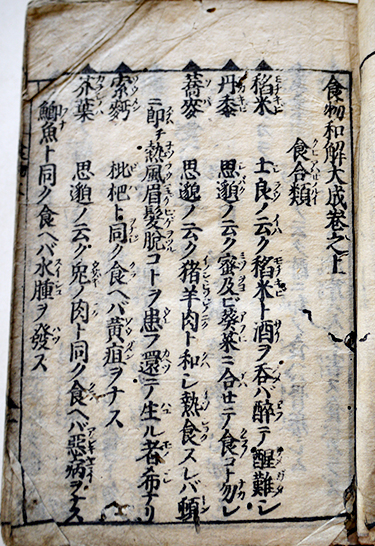 食物和解大成巻之上
食合類
稻米　士良ノ云ク稻米ト酒ヲ呑バ醉テ醒難シ
丹黍　思邈ノ云ク蜜及ビ葵菜ニ合セテ食コト勿レ
蕎麥　思邈ノ云ク猪羊肉ト和シ熱食スレバ頓
ニ即チ熱風眉髮脱コトヲ患フ還テ生ル者希ナリ
索麪　枇杷ト同ク食ヘバ黄疸ヲナス
芥葉　思邈ノ云ク兎ノ肉ト同ク食ヘバ惡病ヲナス
鯽魚ト同ク食ヘバ水腫ヲ發ス